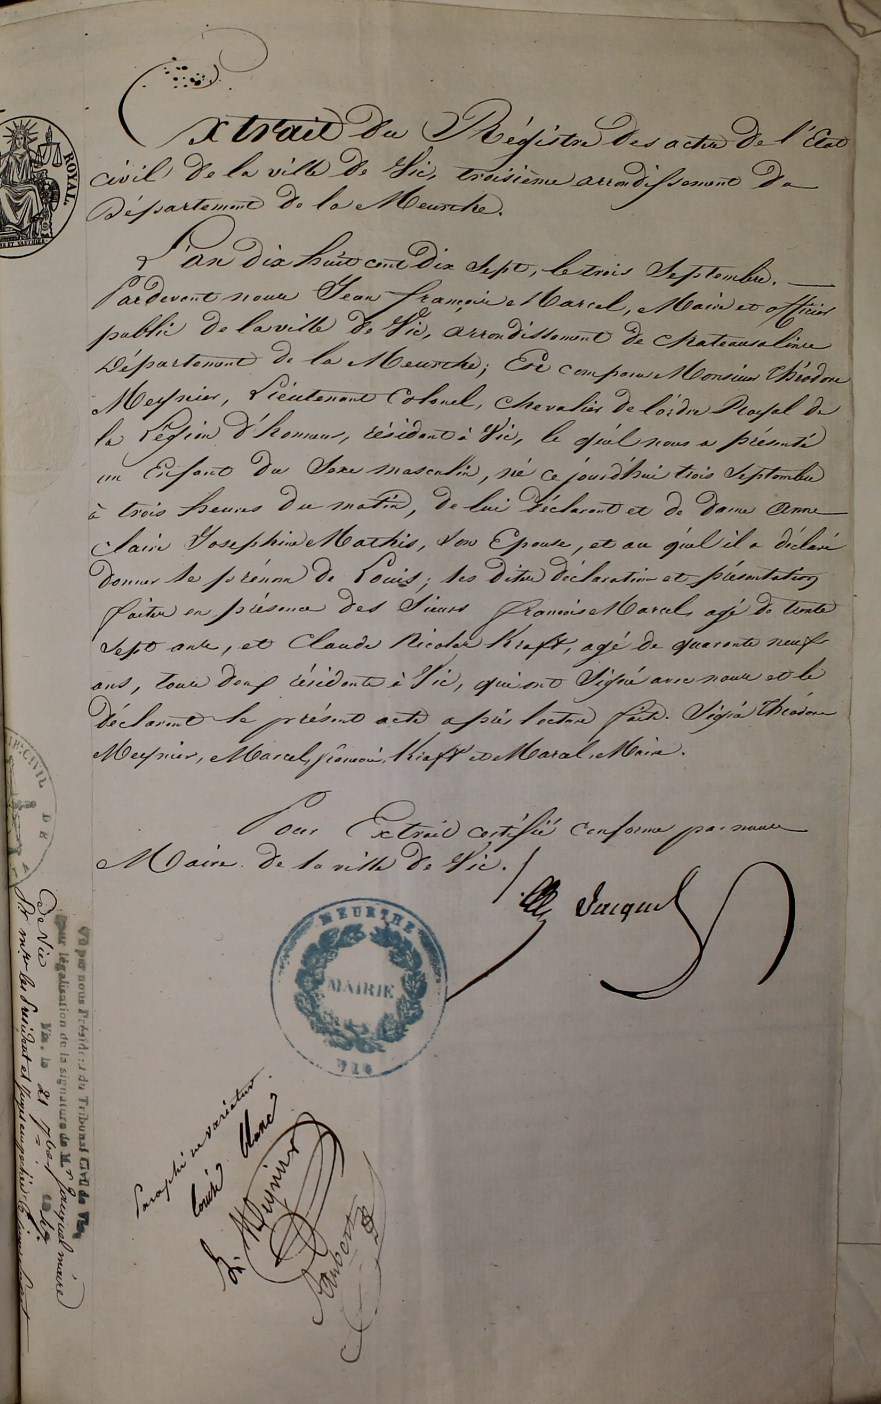 Extrait du Régistre des actes de l'Etat
civil de la ville de Vic, troisième arrondissement du
Département de la Meurthe.
L'an dix huit cent Dix Sept, le trois Septembre.
Pardevant nous Jean françois Marcel, Maire et officier
public de la ville de Vic, arrondissement de chateausalins
Département de la Meurthe; Est comparu Monsieur Théodore
Meynier, Lieutenant Colonel, chevalier de l'ordre Royal de
la Légion d'honneur, résidant à Vic, le quel nous a présenté
un Enfant du Sexe masculin, né ce jourd'hui trois Septembre
à trois heures du matin, de lui déclarant et de dame Anne
claire Josephine Mathis, son Epouse, et au quel il a déclaré
donner le prénom de Louis; les dites déclaration et présentation
faites en présence des Sieurs françois Marcel, agé de trente
sept ans, et Claude Nicolas Krafft, agé de quarante neuf
ans, tous deux résidents à Vic, qui ont Signé avec nous et le
déclarant le présent acte après lecture faite. Signé Théodore
Meynier, Marcel françois, Krafft et Marcel, Maire.
Pour Extrait certifié conforme par nous
Maire de la ville de Vic.
Jacquel
MEURTHE
MAIRIE
VIC
ROYAL.
CIVIL DE
Vu par nous Président du Tribunal Civil de Vic,
pour légalisation de la signature de M. Jacquel maire
de Vic
Vic, le 21
Paraphé ne varietur
Louise Blanc
L. Meynier
Jaubert